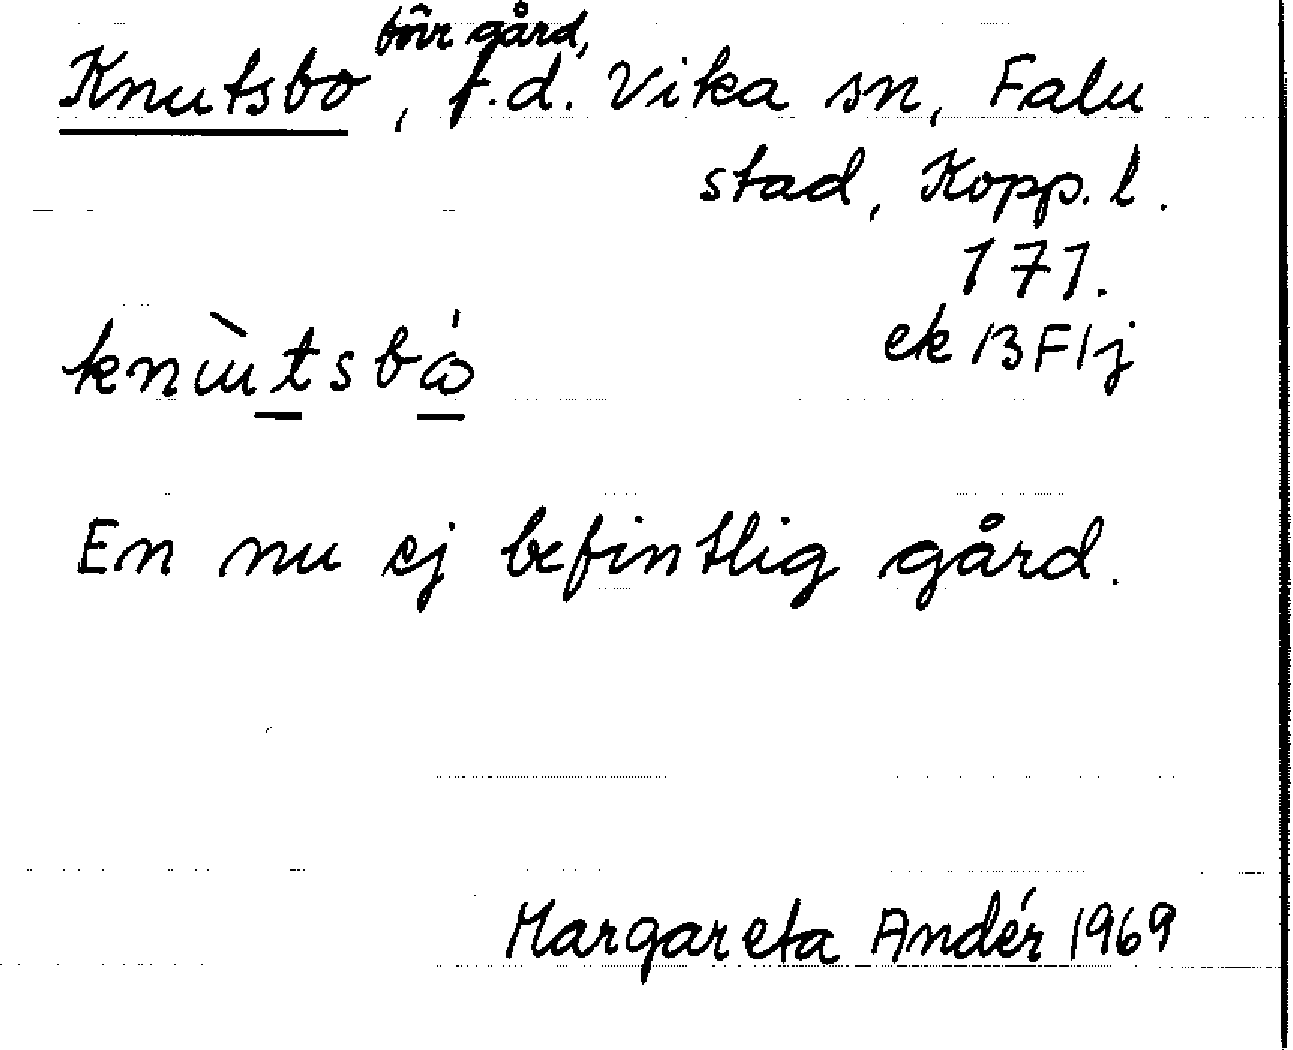 förr gård,
Knutsbo, f.d. Vika sn, Falu
stad, Kopp. l.
171.
ek 13F1j
En nu ej befintlig gård.
Margareta Andér 1969